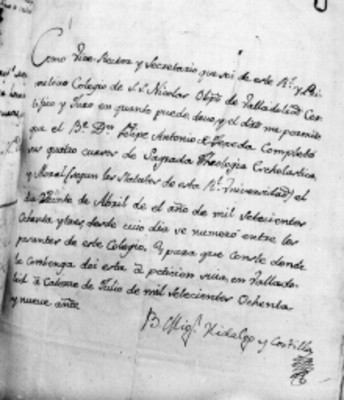 Como Vice-Rector y Secretario que soi de este Rl. y Pri
mitivo Colegio de S. S. Nicolas Obpo. de Valladolid Cer
tifico y Juro en quanto puedo, devo, y el dro. me permite
que el Br. Dn. Felipe Antonio Texeda Completó
sus quatro cursos de Sagrada Theologia Escholastica,
y Moral (segun los Statutos de esta Rl. Universidad) el
dia Veinte de Abril de el año de mil setecientos
Ochenta y tres, desde cuio dia se numeró entre los
pasantes de este Colegio. Y para que conste donde
le combenga doi esta á peticion suia, en Vallado
lid á Catorze de Julio de mil setecientos Ochenta
y nueve años
Br. Migl. Hidalgo y Costilla